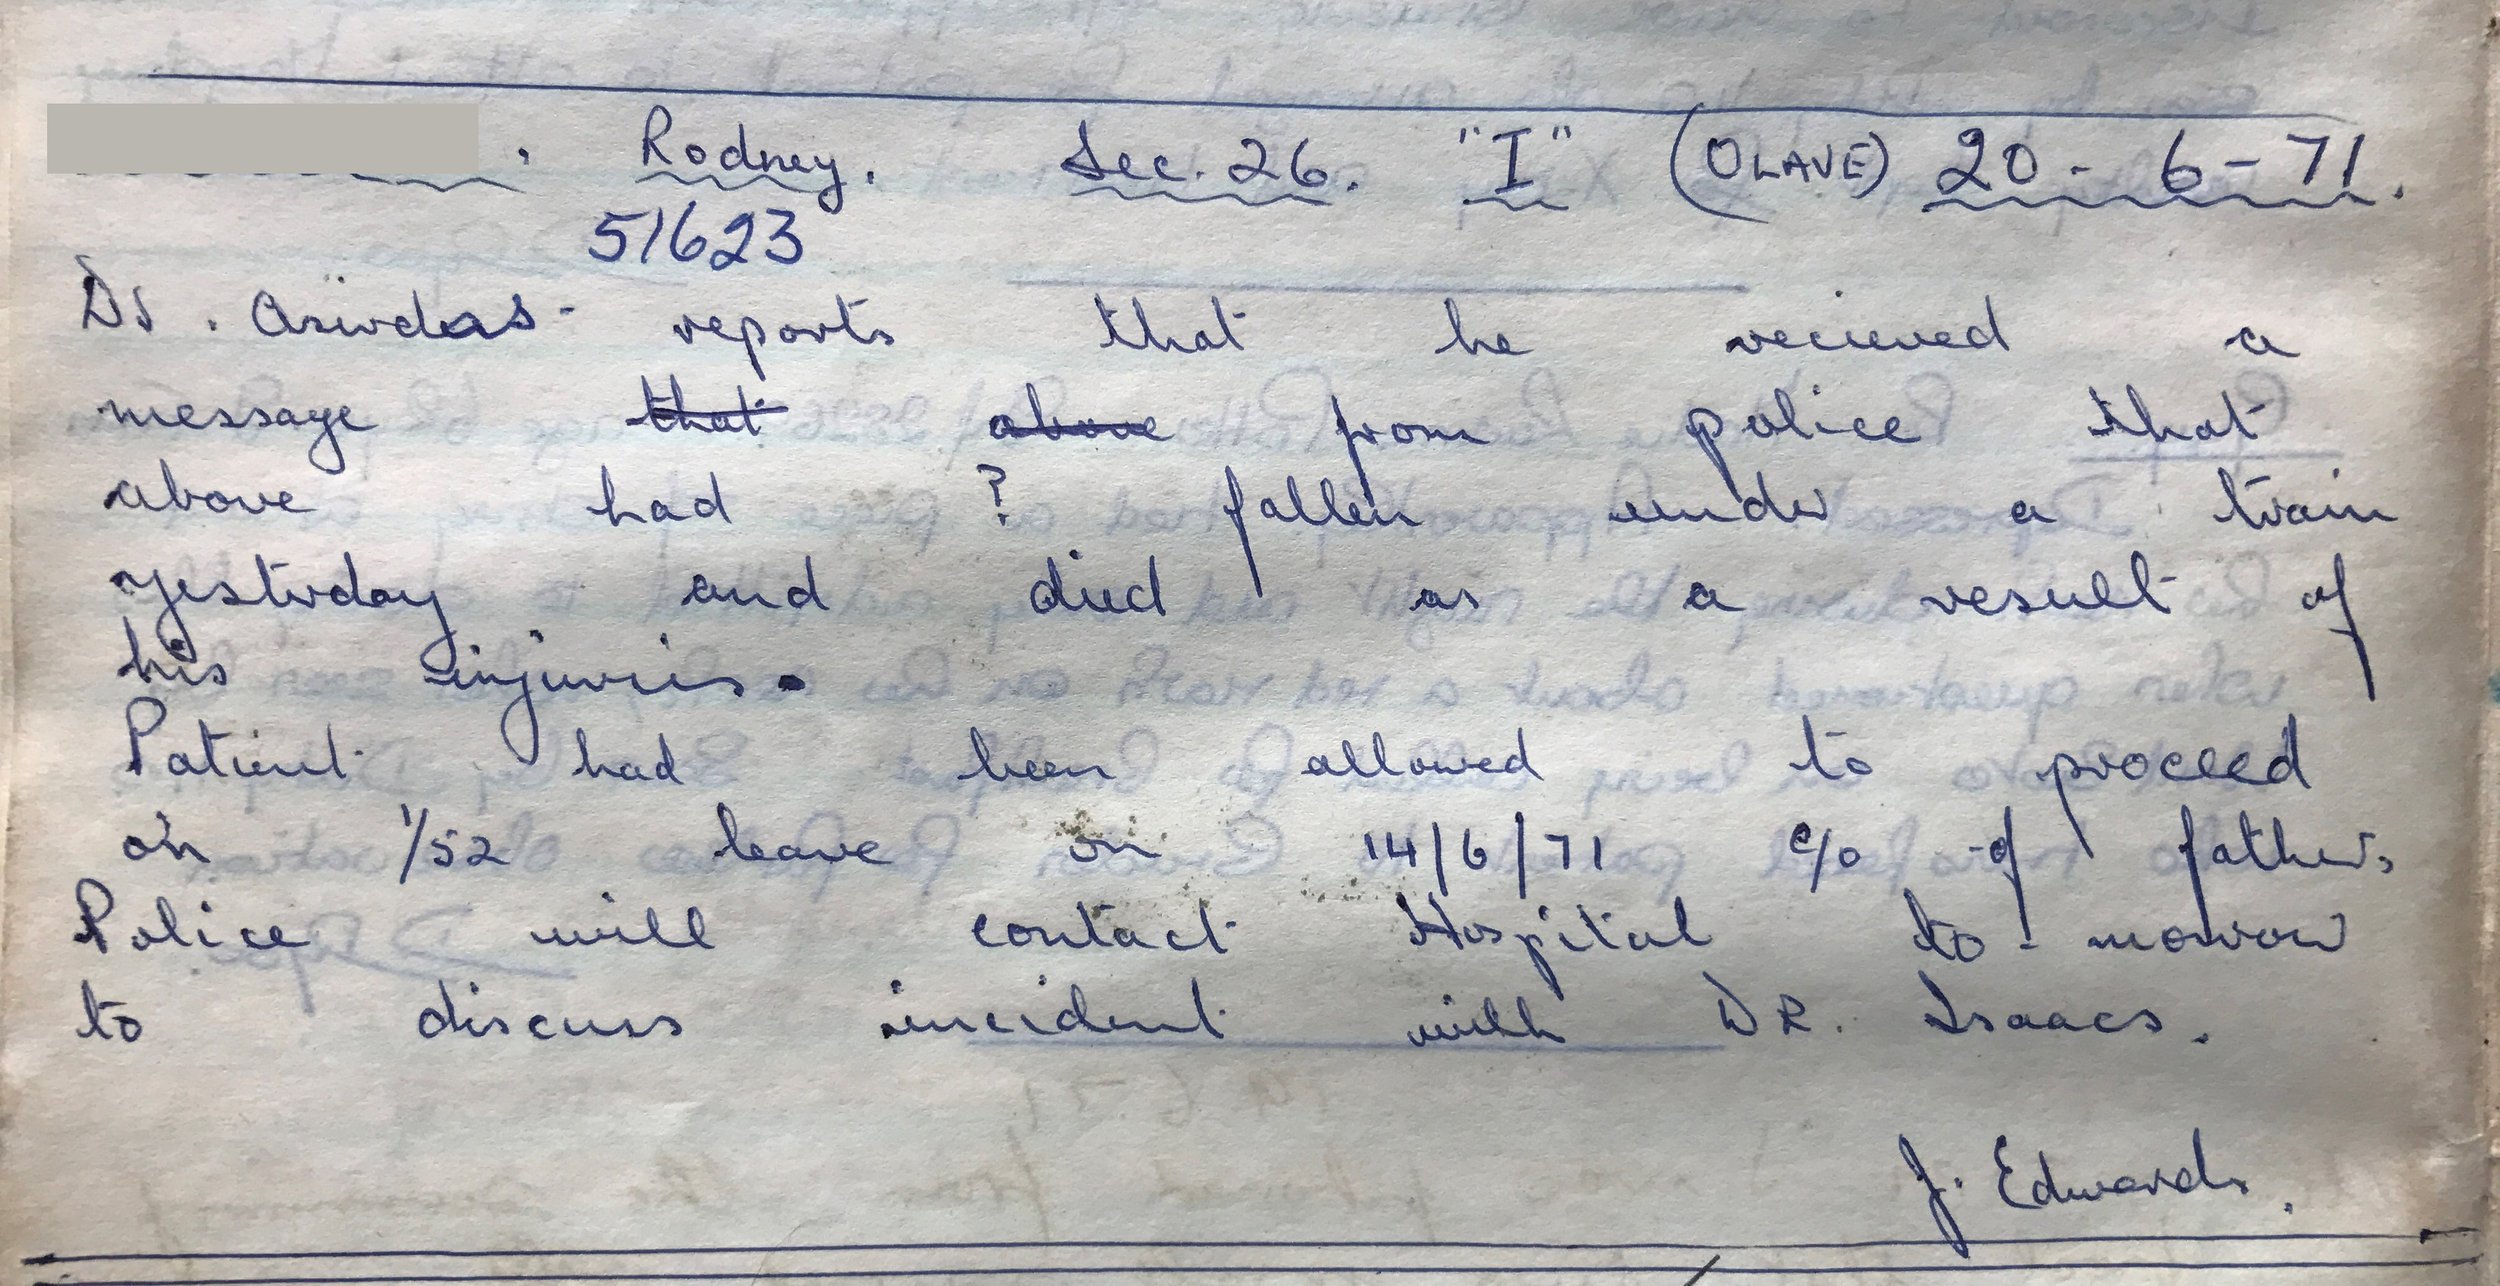 . Rodney. Sec. 26. "I" (OLAVE) 20 - 6 - 71.
51623
reports that he recieved a
message that above from police that
above had ? fallen under a train
yesterday and died as a result of
his injuries.
Patient had been allowed to proceed
on 1/52 leave on 14/6/71 c/o of father.
Police will contact Hospital to-morrow
to discuss incident with DR. Isaacs.
J. Edwards.